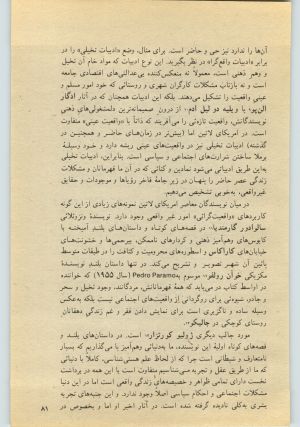 آن‌ها را ندارد نیز حی و حاضر است. برای مثال، وضع «ادبیات تخیلی» را در
برابر «ادبیات واقع‌گرا» در نظر بگیرید. این نوع ادبیات که مواد خام آن تخیل
و وهم ذهنی است، معمولا نه منعکس‌کننده بی‌عدالتی‌های اقتصادی جامعه
است و نه بازتاب مشکلات کارگران شهری و روستائی که خود امور مسلم و
عینی واقعیت را تشکیل می‌دهند. بلکه این ادبیات همچنان که در آثار ادگار
آلن‌پو، یا ویلیه دو لیل آدم - از درون متعارض‌ترین دلمشغولی‌های ذهنی
نویسندگانش، واقعیت تازه‌ئی را می‌آفریند که ذاتاً با «واقعیت عینی» متفاوت
است. در امریکای لاتین اما (بیش‌تر در زمان‌های حاضر و همچنین در
گذشته) ادبیات تخیلی نیز در واقعیت‌های عینی ریشه دارد و خود وسیلهٔ
برملا ساختن شرارت‌های اجتماعی و سیاسی است. بنابراین، ادبیات تخیلی
به‌این طریق ادبیاتی می‌شود نمادین و کنائی که در آن ما قهرمانان و مشکلات
زندگی عصر حاضر را پنهان در زیر جامهٔ فاخر رؤیاها و موجودات و حقایق
غیرواقعی، به‌خوبی تشخیص می‌دهیم.
در میان نویسندگان معاصر امریکای لاتین نمونه‌های زیادی از این گونه
کاربردهای «واقعیت‌گرائی» امور غیر واقعی وجود دارد. نویسندهٔ ونزوئلائی
سالوادور گارمندیا، در قصه‌های کوتاه و داستان‌های بلند آمیخته با
کابوس‌های وهم‌آمیز ذهنی و کردارهای ناممکن، بی‌رحمی‌ها و خشونت‌های
خیابان‌های کاراکاس و اسطوره‌های محرومیت و کثافت را در طبقات متوسط
پائین آن شهر تصویر و تشریح می‌کند. در تنها داستان بلند نویسندهٔ
مکزیکی خوآن رولفو، موسوم به Pedro Paramo (سال ۱۹۵۵) که خواننده
در اواسط کتاب در می‌یابد که همهٔ قهرمانانش، مردگانند، وجود تخیل و سحر
و جادو، شیوه‌ئی برای روگردانی از واقعیت‌های اجتماعی نیست بلکه به‌عکس
وسیله ساده و ناگزیری است برای نمایش دادن فقر و غم زندگی دهقانان
روستای کوچکی در جالیسکو.
مورد جالب دیگری ژولیو کورتازار است. در داستان‌های بلند و
قصه‌های کوتاه اولیهٔ این نویسنده، ما به‌دنیائی وهم‌آمیز پا می‌گذاریم که بسیار
نامتعارف و شیطانی است چرا که از لحاظ علم هستی‌شناسی، کاملاً با دنیائی
که ما از طریق عقل و تجربه می‌شناسیم متفاوت است با این همه در برداشت
نخست دارای تمامی ظواهر و خصیصه‌های زندگی واقعی است اما در این دنیا
مشکلات اجتماعی و احکام سیاسی اصلاً وجود ندارد. و این جنبه‌های تجربه
بشری به‌کلی نادیده گرفته شده است. در آثار اخیر او اما و بخصوص در
۸۱